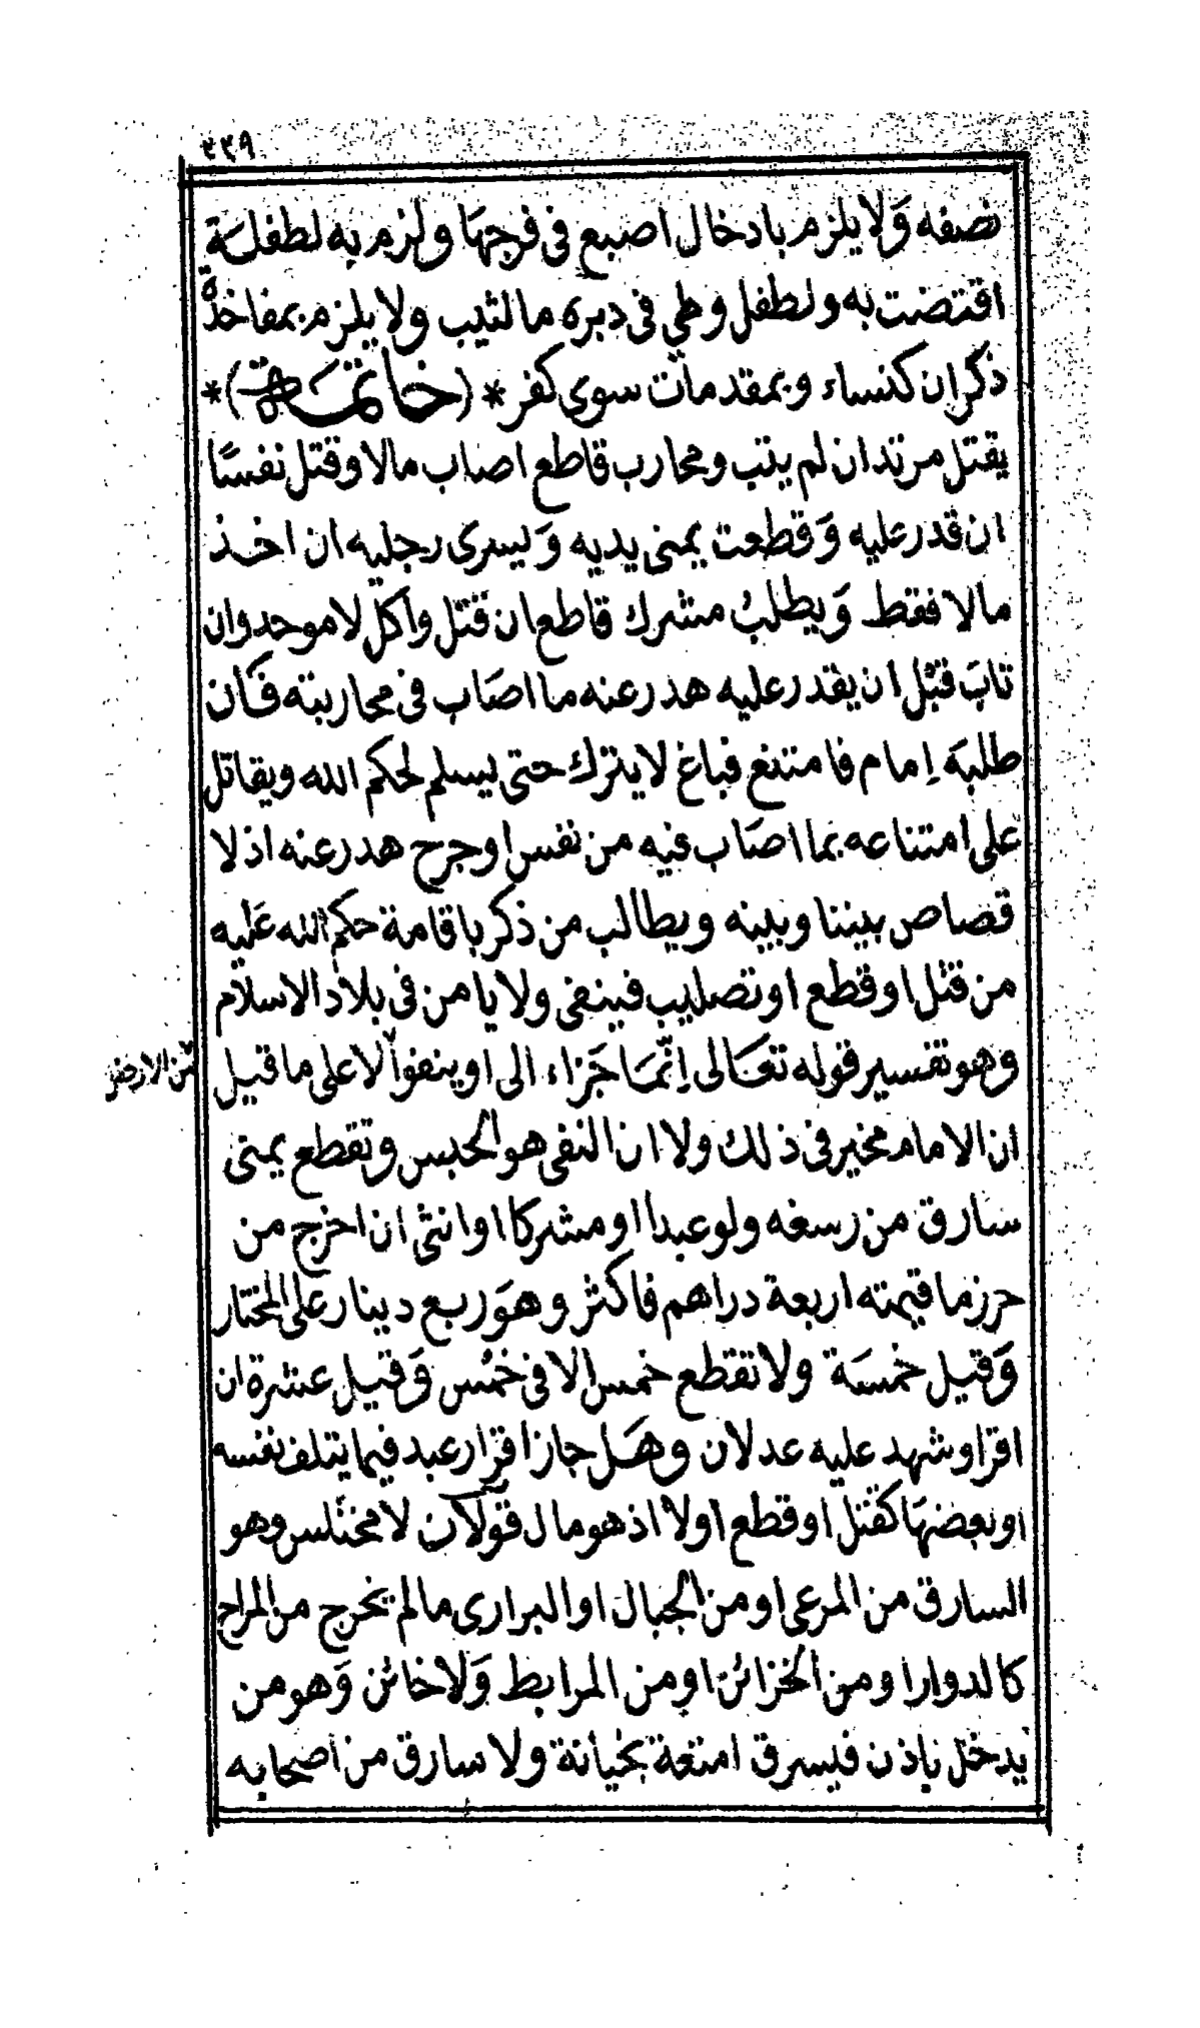 ٣٣٩
نصفه وَلا يلزم بادخال اصبع فى فرجهَا ولزم به لطفلة
افتضت به ولطفل وطي فى دبره ما لثيب ولا يلزم بمفاخذة
ذكران كنساء وبمقدمات سوى كفر * (خاتمة) *
يقتل مرتد ان لم يتب ومحارب قاطع اصاب مالا وقتل نفسًا
ان قدر عليه وَقطعت يمنى يديه وَيسرى رجليه ان اخذ
مالا فقط وَيطلبُ مشرك قاطع ان قتل واكل لا موحد وان
تابَ قبْل ان يقدر عليه هدر عنه ما اصَاب فى محاربته فان
طلبَه اِمام فامتنع فباغ لا يترك حتى يسلم لحكم الله ويقاتل
على امتناعه بما اصَاب فيه من نفس او جرح هدر عنه اذ لا
قصاص بيننا وبينه ويطالب من ذكر باقامة حكم الله عَليه
من قتل او قطع او تصليب فينفى ولا يامن فى بلاد الاسلام
وهو تفسير قوله تعَالى اِنّمَا جَزاء الى او ينفوا لا على ما قيل
من الارض
ان الامام مخير فى ذلك ولا ان النفى هو الحبس وتقطع يمنى
سارق من رسغه ولو عبدا او مشركا او انثى ان اخرج من
حرز ما قيمته اربعة دراهم فاكثر وهوَ ربع دينار على المختار
وَقيل خمسَة ولا تقطع خمس الا فى خمُس وَقيل عشرة ان
اقر او شهد عليه عدلان وهَل جاز اقرار عبد فيما يتلف نفسه
او بعضهَا كقتل او قطع اولا اذ هو مال قولان لا مختلس وهو
السارق من المرعى او من الجبال او البرارى ما لم يخرج من المراح
كالدوار او من الخزائن او من المرابط وَلا خائن وَهو من
يدخل باذن فيسرق امتعة بخيانة ولا سارق من اصحابه